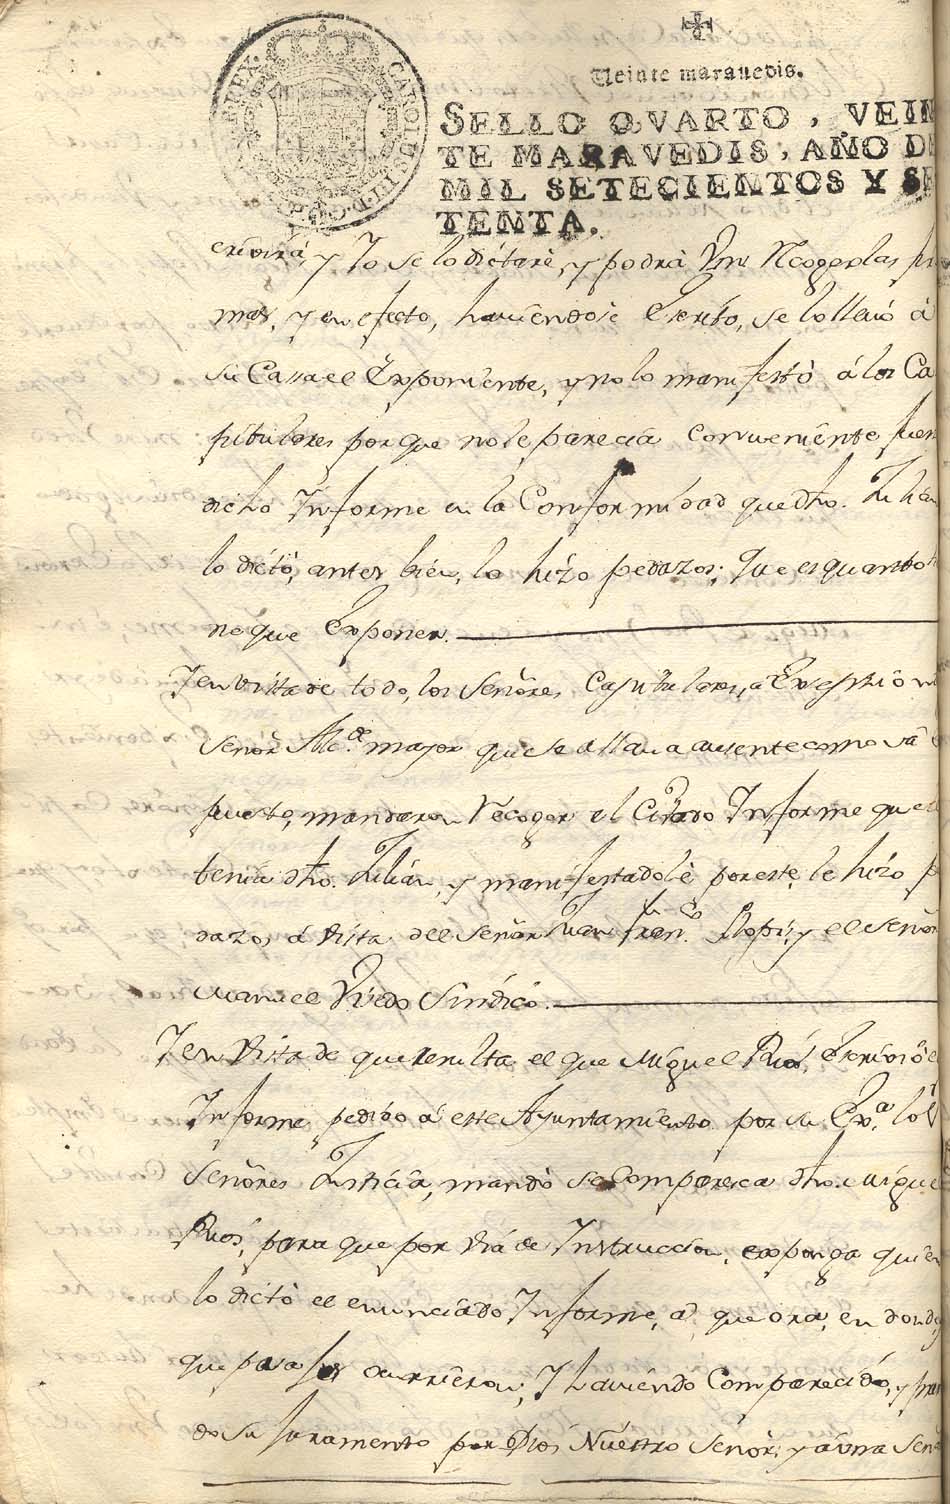 CAROLUS III D G
REX
Veinte maravedis.
SELLO QVARTO, VEIN
TE MARAVEDIS, AÑO DE
MIL SETECIENTOS Y SE
TENTA.
crivirá, y Yo se lo dictaré, y podrá Vm Recoger las fir
mas, y en efecto, haviendose Escrito, se lo llevó á
su Cassa el Exponente, y no lo manifestó á los Ca
pitulares por que no le parecia conveniente fuese
dicho Informe en la Conformidad que dho. Julian
lo dictó, antes bien, lo hizo pedazos; Que es quanto
ne que Exponer.
Y en vista de todo, los Señores Capitulares, a Excepción
Señor Alc.de mayor que se allava ausente como vá
puesto, mandaron Recoger el Citado Informe que
tenia dho. Julian, y manifestadole por este, le hizo pe
dazos á vista del Señor Juan Fran.co Llopis, y el Señor
Manuel Pisedo Sindico.
Y en Vista de que resulta el que Miguel Rios, Escrivió el
Informe pedido á este Ayuntamiento por su Ex.a los
Señores Justicia, mandó se Comparesca dho. Miguel
Rios, para que por via de Instruccion, exponga quien
lo dictó el enunciado Informe, á que ora, en donde
que pasajes ocurrieron; Y haviendo Comparecido, y
do su Juramento por Dios Nuestro Señor, y á una Señ